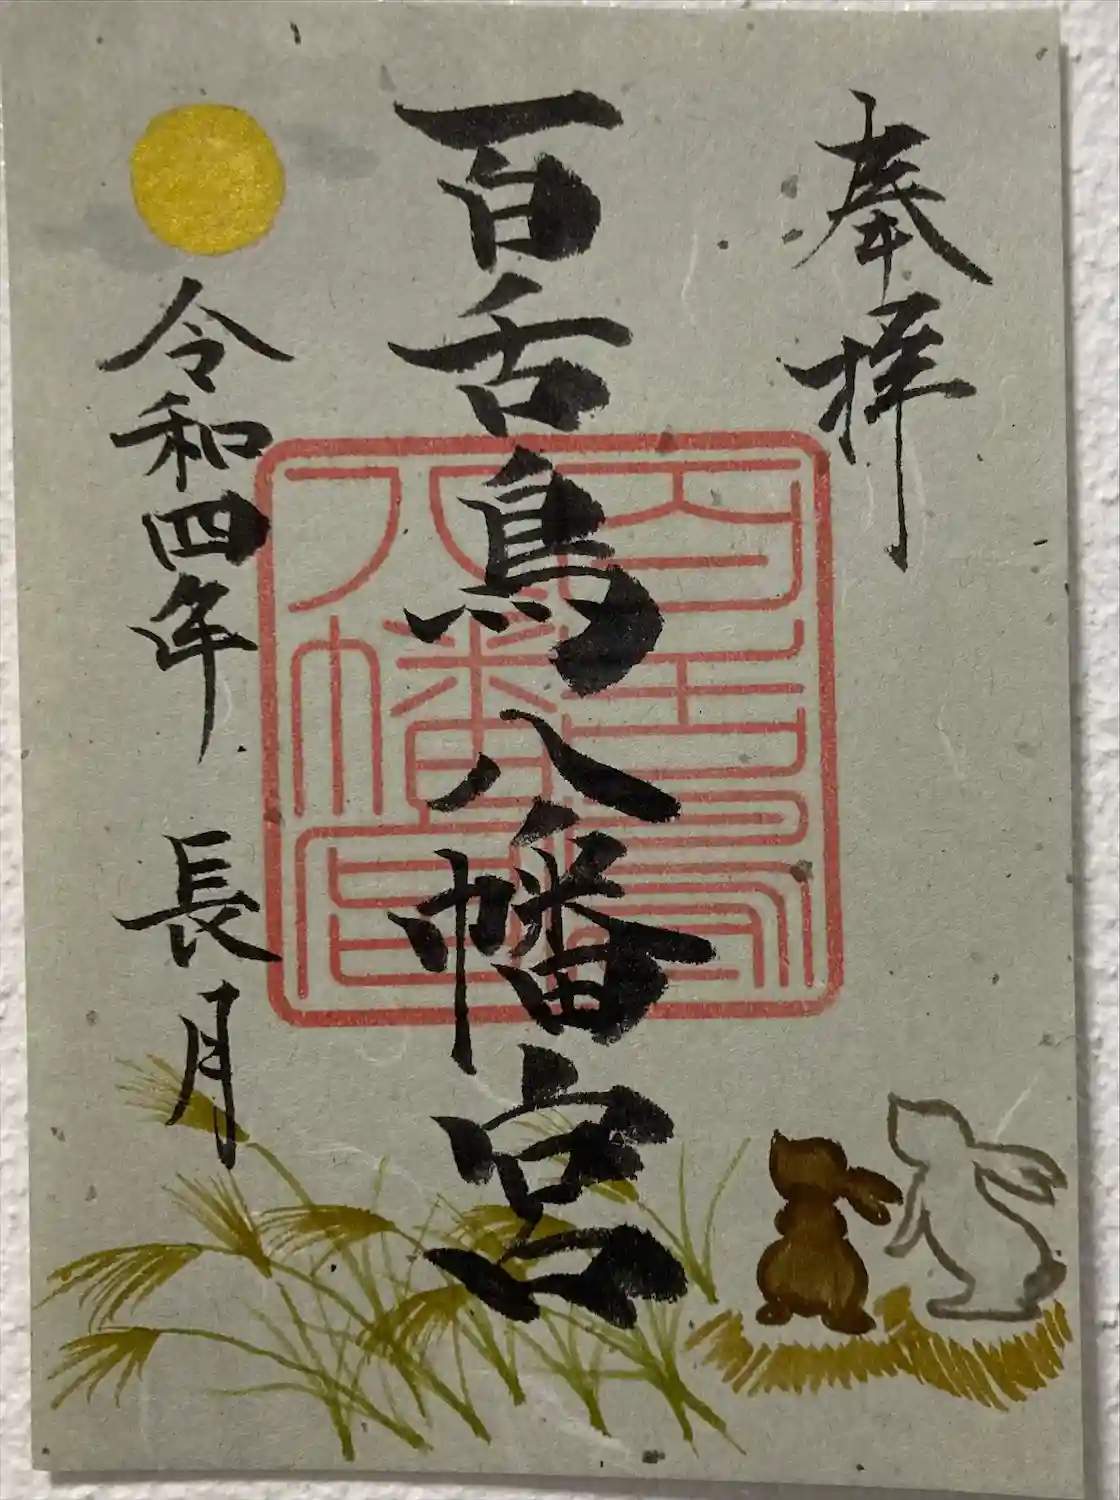 奉拝
百舌鳥八幡宮
百舌鳥
八幡宮
令和四年 長月